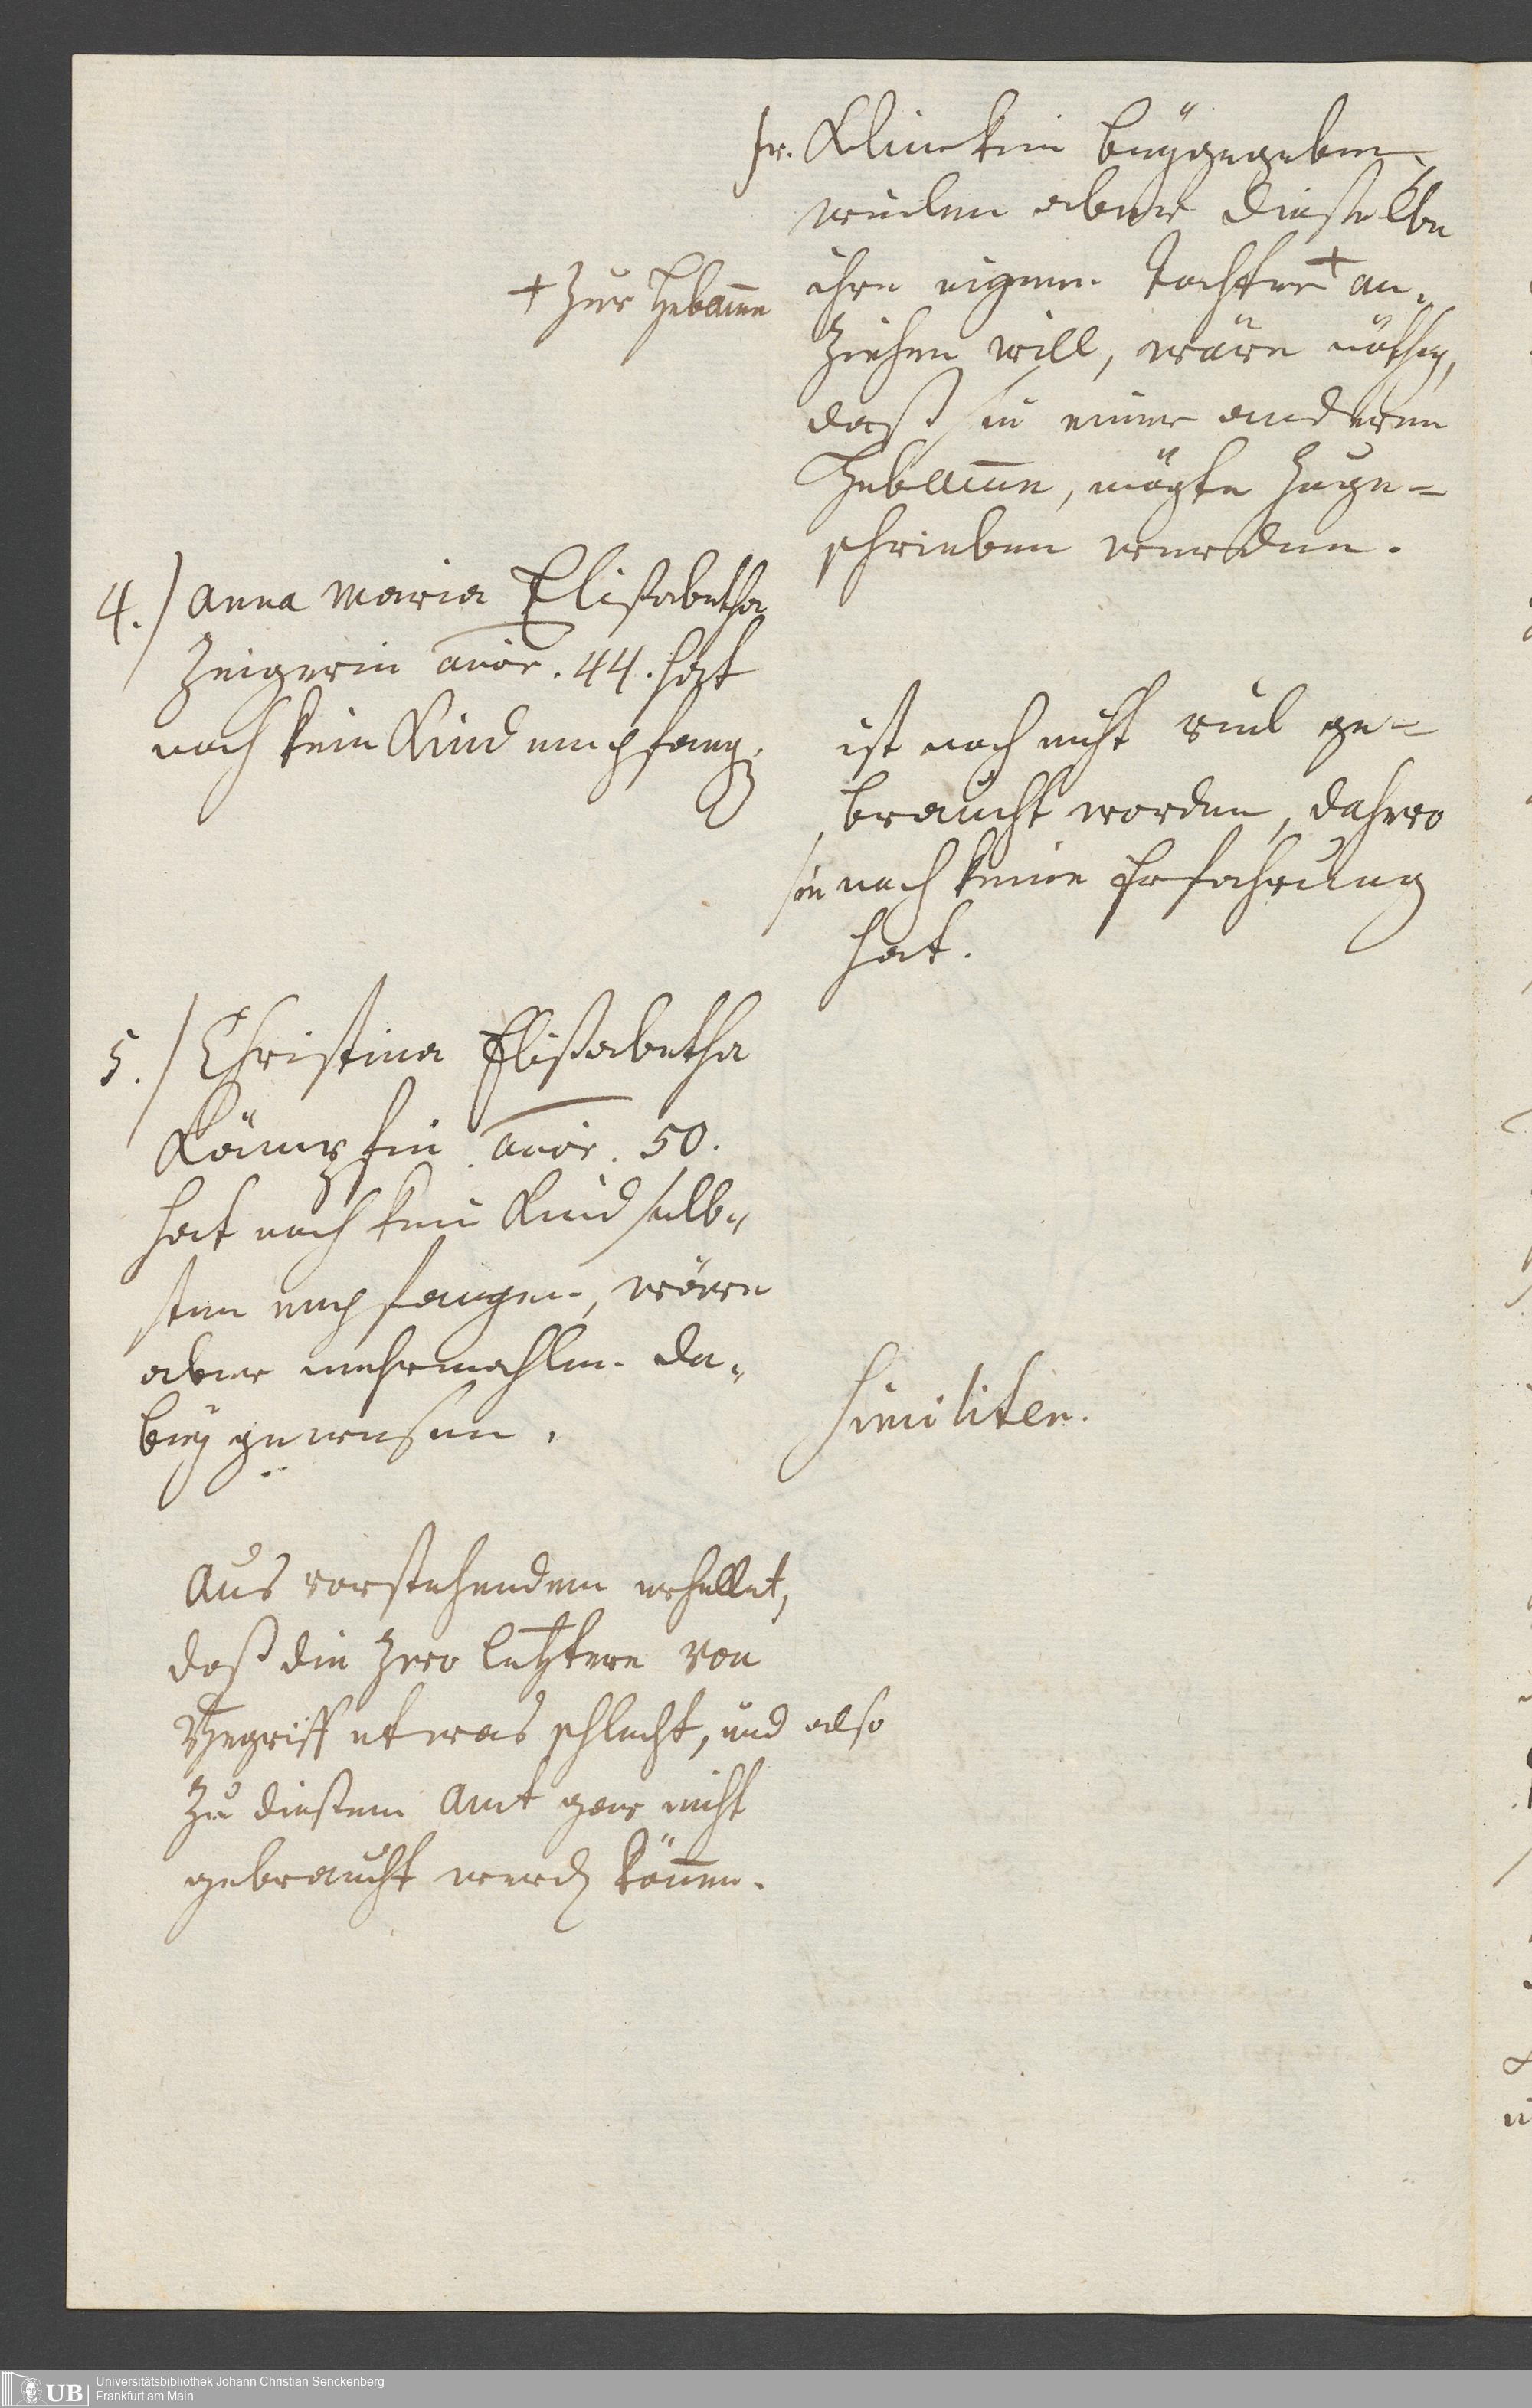 fr. Klinckin beygegeben,
weilen aber dießelbe
ihre eigene Tochter + an-
ziehen will, wäre nöthig,
daß sie einer anderen
Hebam̄e, mögte zuge-
schrieben werden.
+ Zur Hebam̄e
4.) Anna Maria Elisabetha
Zeigerin anor. 44. hat
noch kein Kind empfang.
ist noch nicht viel ge-
braucht worden, dahero
sie noch keine Erfahrung
hat.
5.) Christina Elisabetha
Kämpfin anor. 50.
hat noch kein Kind selb-
sten empfangen, wäre
aber mehrmahlen da-
bey gewesen.
Similiter.
Aus vorstehendem erhellet,
daß die zwo letztere von
Begriff etwas schlecht, und also
zu dießem Amt gar nicht
gebraucht werd. kön̄en.
UB Universitätsbibliothek Johann Christian Senckenberg
Frankfurt am Main